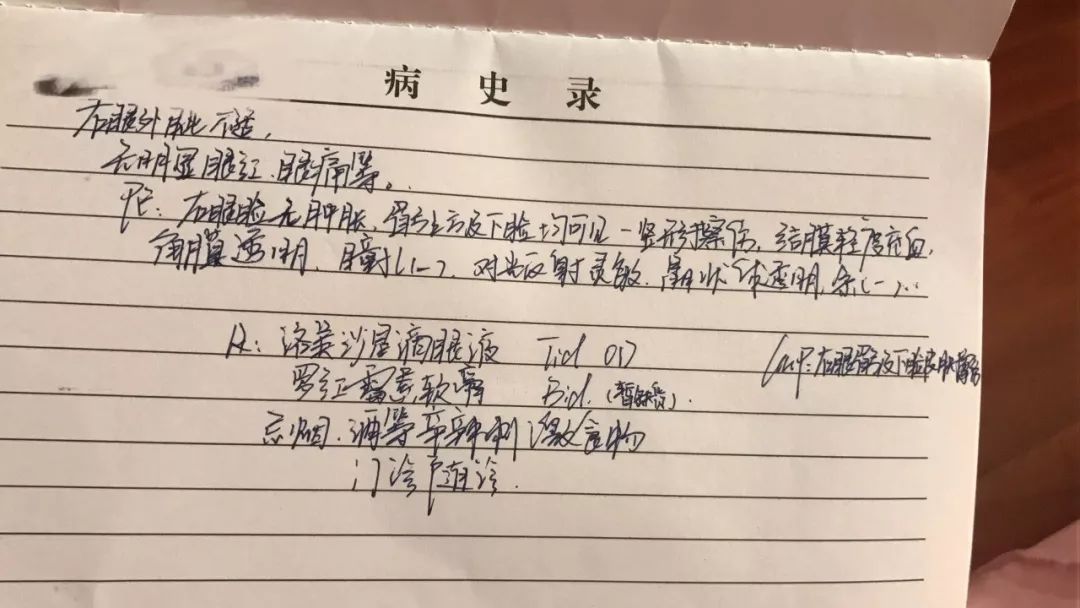 病史录
右眼外眦不适,
无明显眼红、眼痛等。
PE: 右眼睑无肿胀, 眉弓上方及下睑均可见一竖形擦伤, 结膜轻度充血,
角膜透明, KP(-), 对光反射灵敏, 晶状体透明,
R: 洛美沙星滴眼液 Tid OD
Imp: 右眼眉及下睑皮肤擦伤
罗红霉素软膏 Bid. (暂缺货).
忌烟、酒等辛辣刺激食物
门诊随诊.